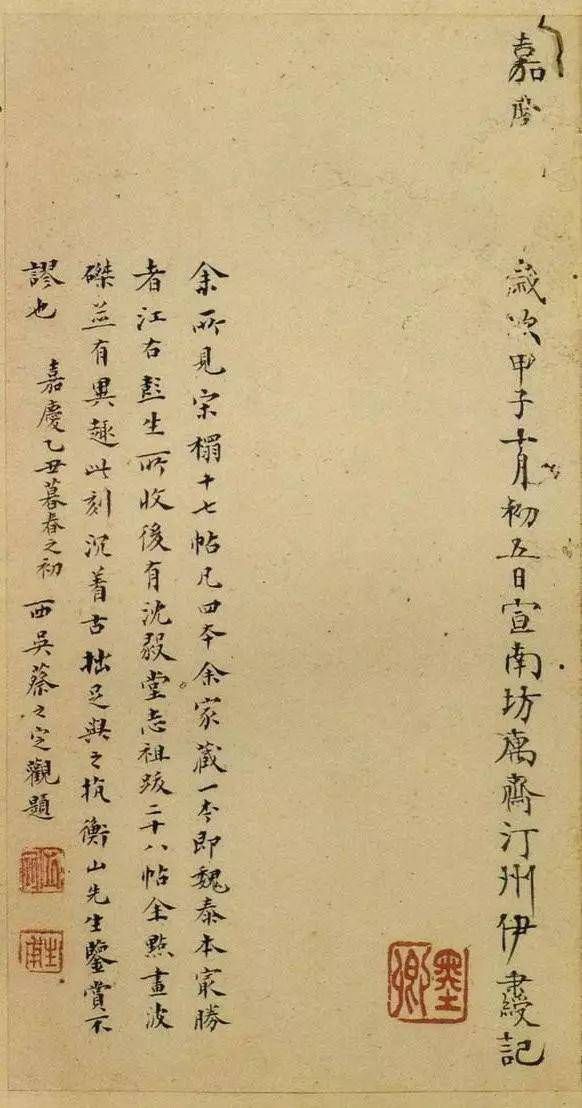 嘉慶
歲次甲子十月初五日宣南坊寓齋汀州伊秉綬記
墨卿
余所見宋榻十七帖凡四本余家藏一本即魏泰本冣勝
者江右彭生所收後有沈毅堂志祖跋二十八帖全點畫波
磔並有異趣此刻沉着古拙足與之抗衡山先生鑒賞不
謬也 嘉慶乙丑暮春之初 西吳蔡之定觀題